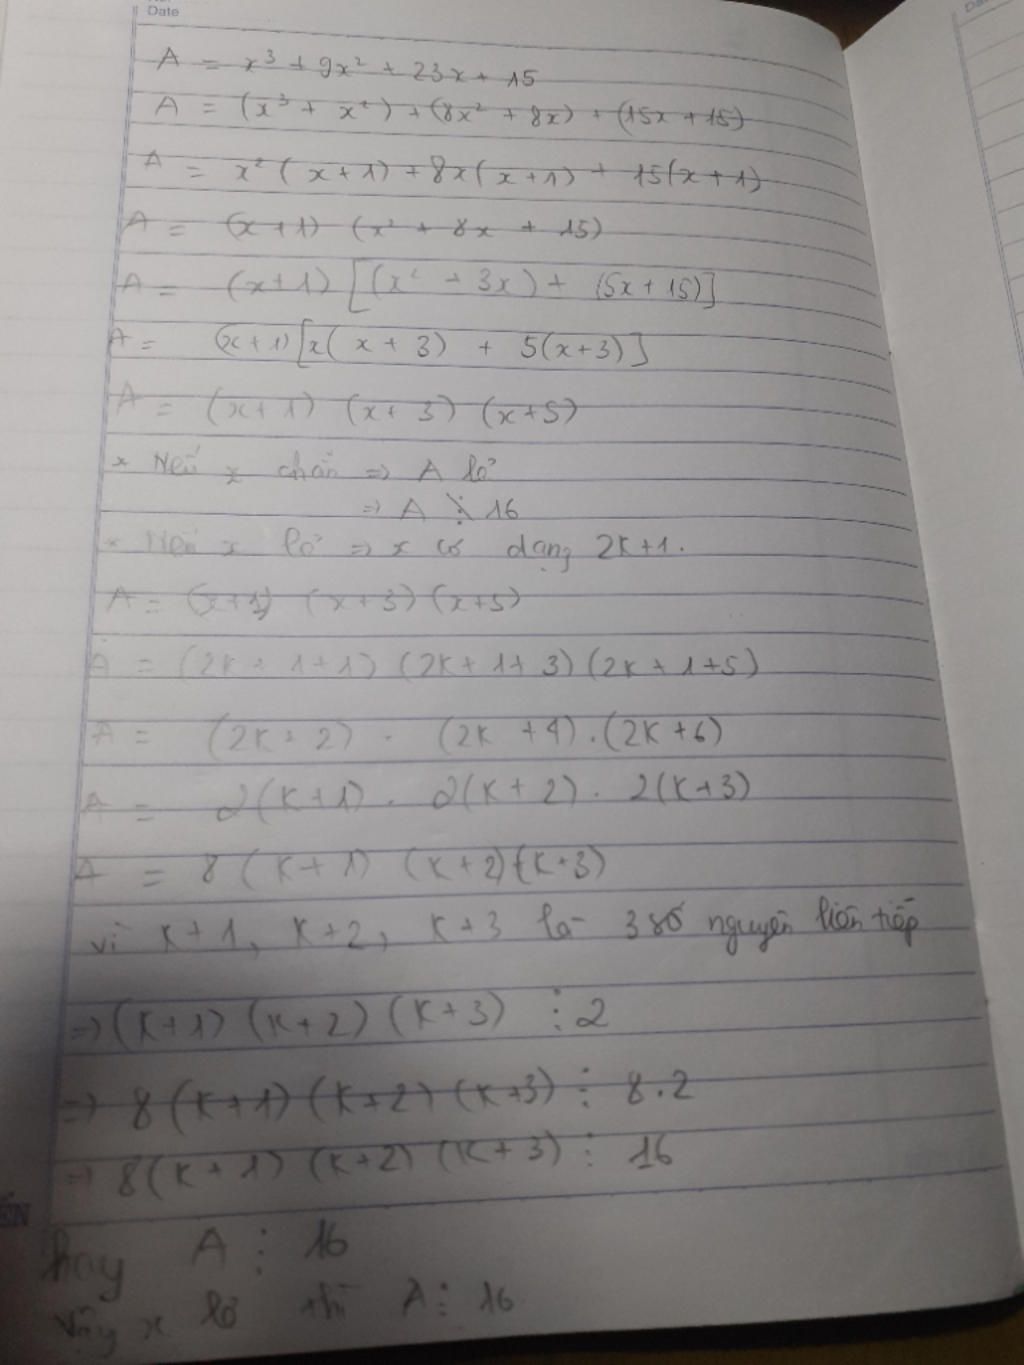 Date
A = x³ + 9x² + 23x + 15
A = (x³ + x²) + (8x² + 8x) + (15x + 15)
A = x² (x+1) + 8x (x+1) + 15(x+1)
A = (x+1) (x² + 8x + 15)
A = (x+1) [(x² + 3x) + (5x + 15)]
A = (x+1) [x(x + 3) + 5(x+3)]
A = (x+1) (x+3) (x+5)
* Nếu x chẵn => A lẻ
=> A ⋮̸ 16
* Nếu x lẻ => x có dạng 2K+1.
A = (x+1) (x+3) (x+5)
A = (2K + 1+1) (2K + 1+ 3) (2K + 1+5)
A = (2K + 2) . (2K + 4) . (2K + 6)
A = 2(K+1) . 2(K+2) . 2(K+3)
A = 8 (K+1) (K+2)(K+3)
vì K+1, K+2, K+3 là 3 số nguyên liên tiếp
=> (K+1) (K+2) (K+3) ⋮ 2
=> 8 (K+1) (K+2) (K+3) ⋮ 8.2
=> 8(K+1) (K+2) (K+3) ⋮ 16
hay A ⋮ 16
Vậy x lẻ thì A ⋮ 16